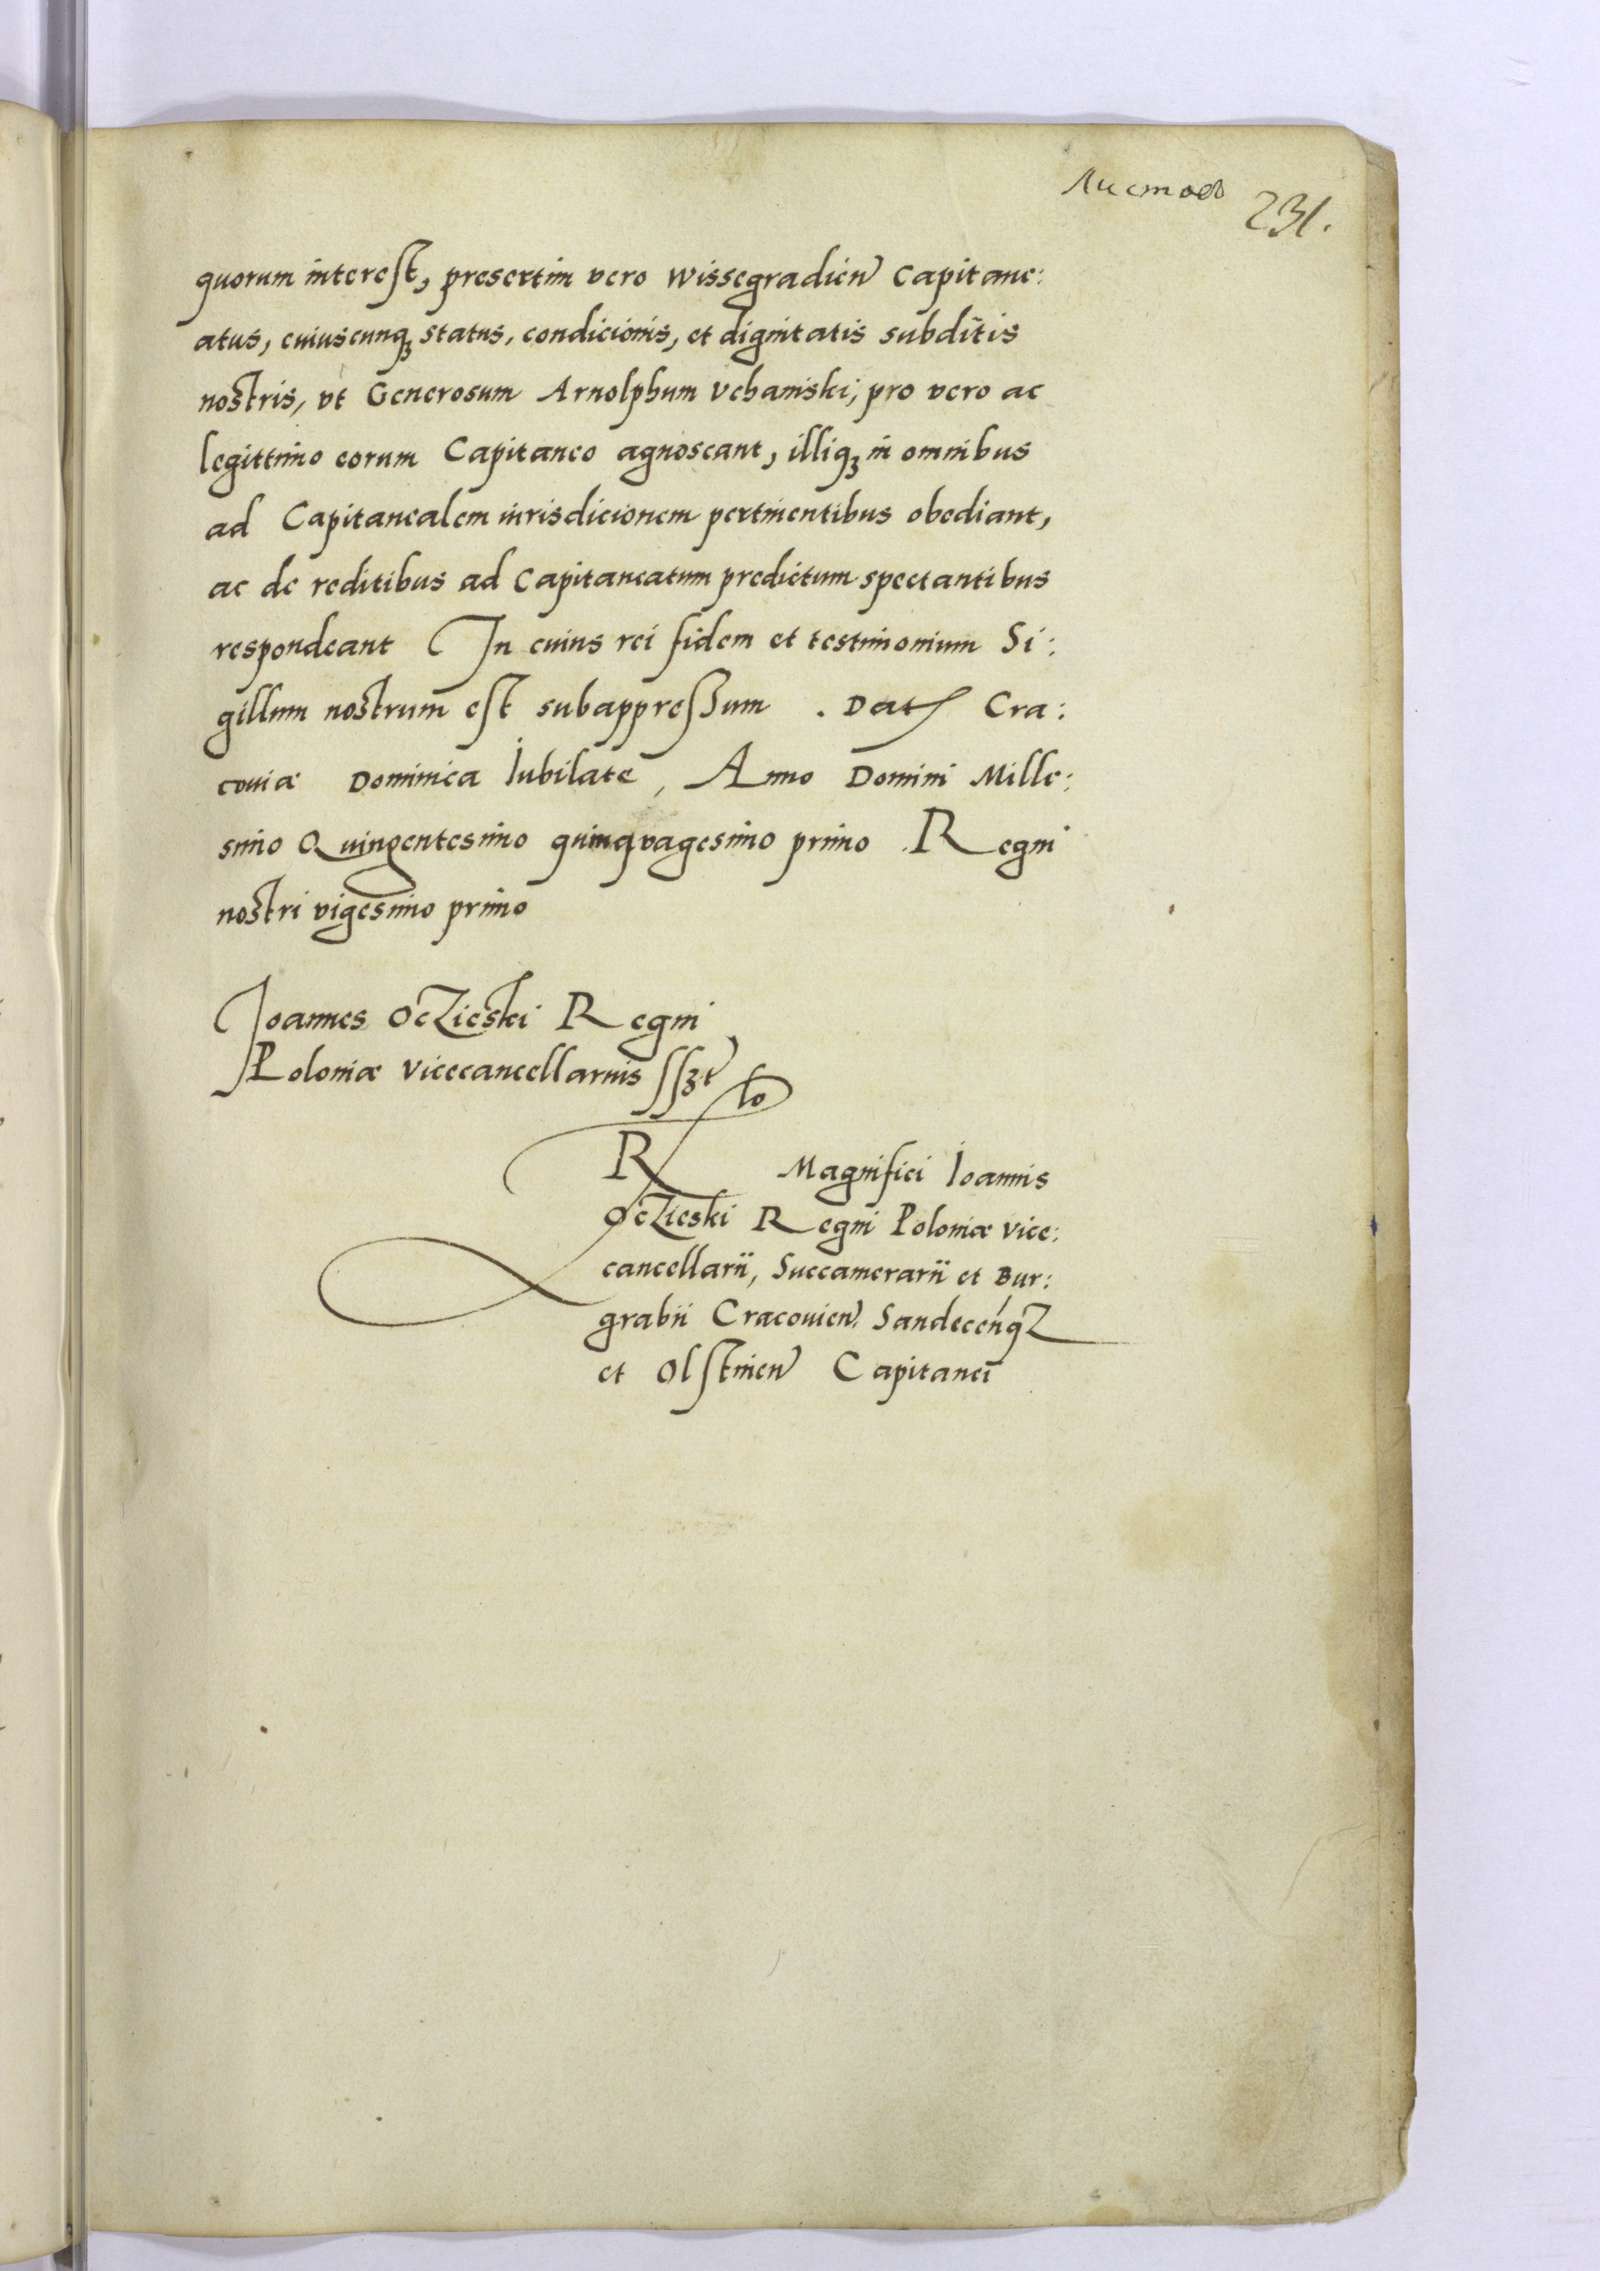 Листовъ 231.
quorum interest, presertim vero Wissegradien Capitane:
atus, cuiuscunq3 status, condicionis, et dignitatis subditis
nostris, vt Generosum Arnolphum Vchanski, pro vero ac
legittimo eorum Capitaneo agnoscant, illiq3 in omnibus
ad Capitanealem iurisdicionem pertinentibus obediant,
ac de reditibus ad Capitaneatum predictum spectantibus
respondeant In cuius rei fidem et testimonium Si:
gillum nostrum est subappressum. Dat Cra:
couiæ Dominica Iubilate, Anno Domini Mille:
simo Quingentesimo quinquagesimo primo. Regni
nostri vigesimo primo
Joannes Oczieski Regni
Poloniæ Vicecancellarius sszt
R lo Magnifici Ioannis
Oczieski Regni Poloniæ Vice:
cancellarii, Succamerarii et Bur:
grabii Cracouien. Sandecenq3
et Olstinen Capitanei